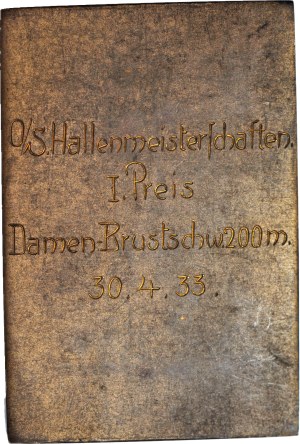 O/S. Hallenmeisterſchaften.
I. Preis
Damen-Brustschw. 200 m.
30. 4. 33.